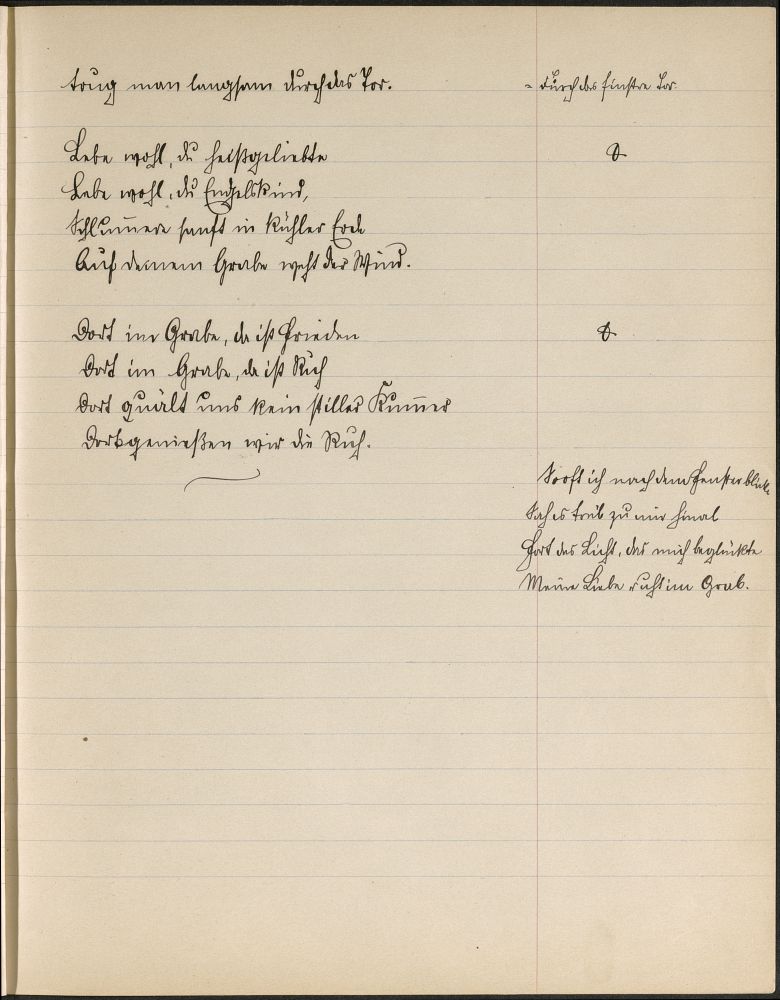 trug man langsam durch das Tor.
= durch das finstre Tor.
Lebe wohl, du heißgeliebte
Lebe wohl, du Engelskind,
Schlum̅ere sanft in kühler Erde
Auf deinem Grabe weht der Wind.
Dort im Grabe, da ist Frieden
Dort im Grabe, da ist Ruh
Dort quält uns kein stiller Kum̅er
Dort genießen wir die Ruh.
So oft ich nach dem Fenster blickte
Sah es trüb zu mir hinab
Fort das Licht, das mich beglückte
Meine Liebe ruht im Grab.